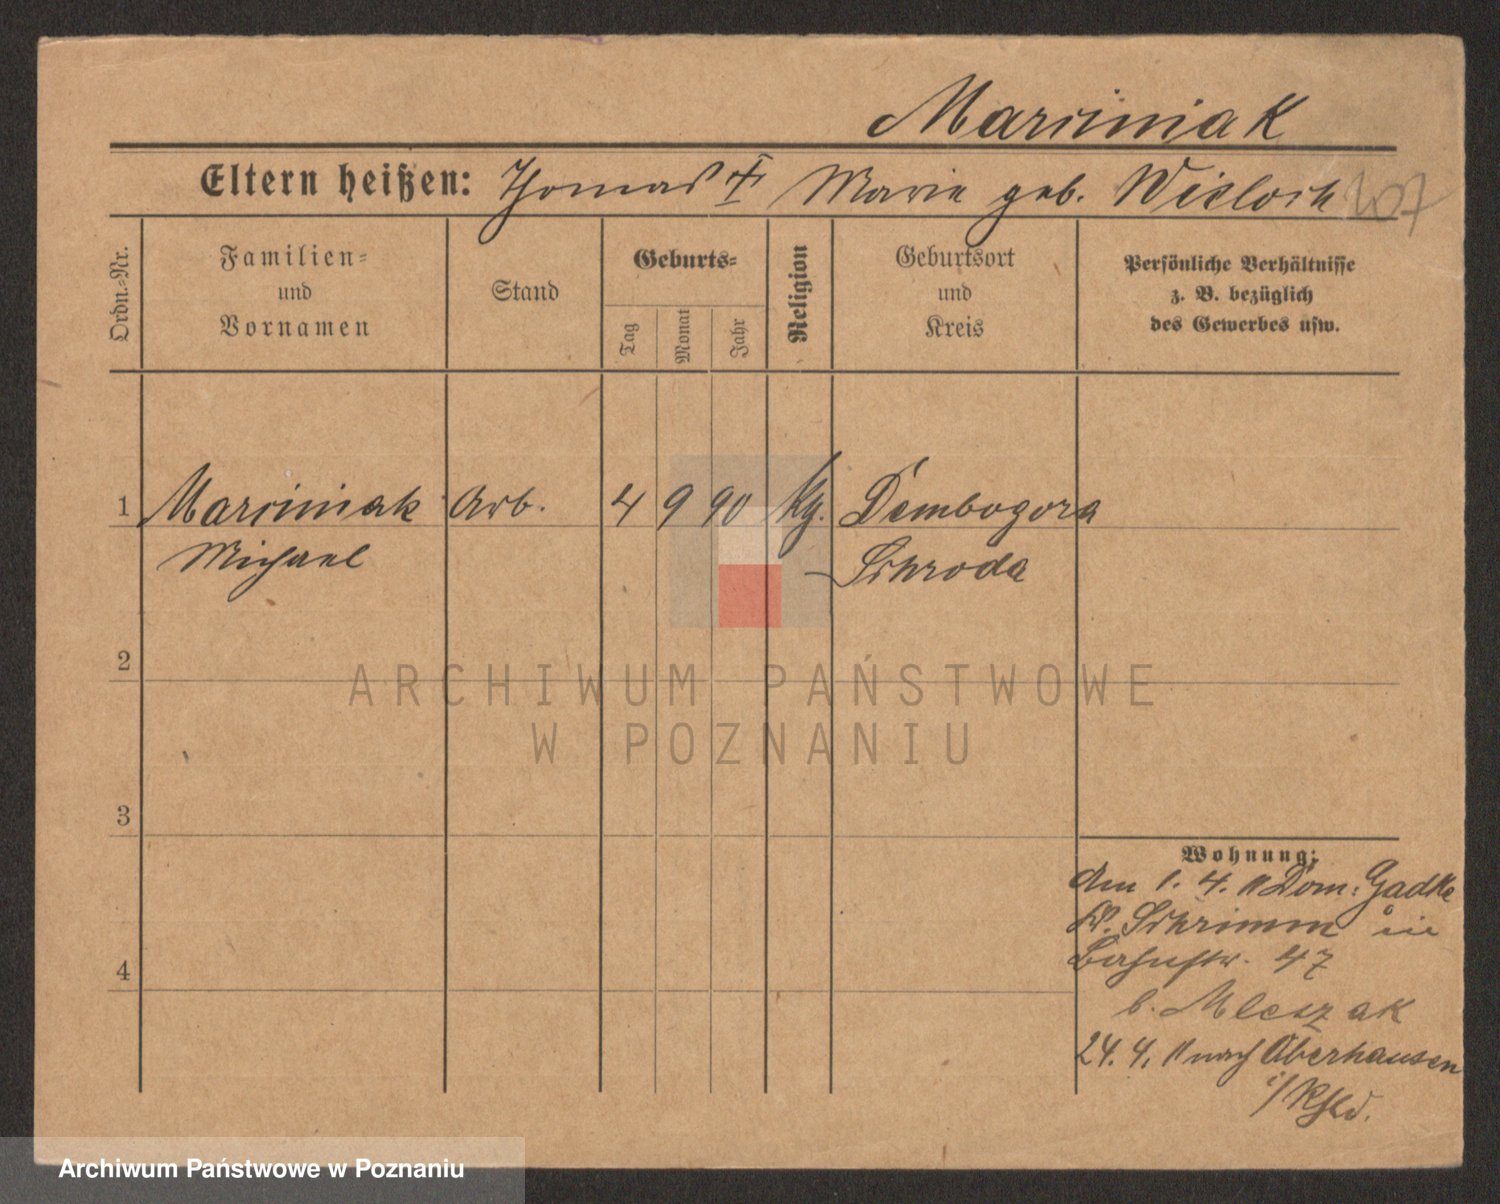 Marciniak
Eltern heißen: Thomas Marie geb. Wisloch
207
Ordn.-Nr.
Familien-
und
Vornamen
Stand
Geburts-
Tag
Monat
Jahr
Religion
Geburtsort
und
Kreis
Persönliche Verhältnisse
z. B. bezüglich
des Gewerbes usw.
1 Marciniak Arb. 4 9 90 Kg. Dembogora
Michael Schroda
2
ARCHIWUM PAŃSTWOWE
W POZNANIU
3
4
Wohnung:
Am 1. 4. 11 Dom. Gadke
Kr. Schrimm in
Bahnstr. 47
b. Mleszak
24. 4. 11 nach Oberhausen
i/Rhld.
Archiwum Państwowe w Poznaniu